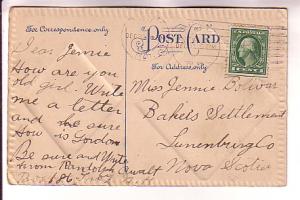 For Correspondence only.
POST CARD
For Address only.
DEC
1 CENT 1
Dear Jennie
How are you
old girl. Write
me a letter
and be sure
How is Gordon
Be sure and write
from Randolph
Box 186
Miss Jennie
Bakers Settlement
Lunenburg Co
Nova Scotia